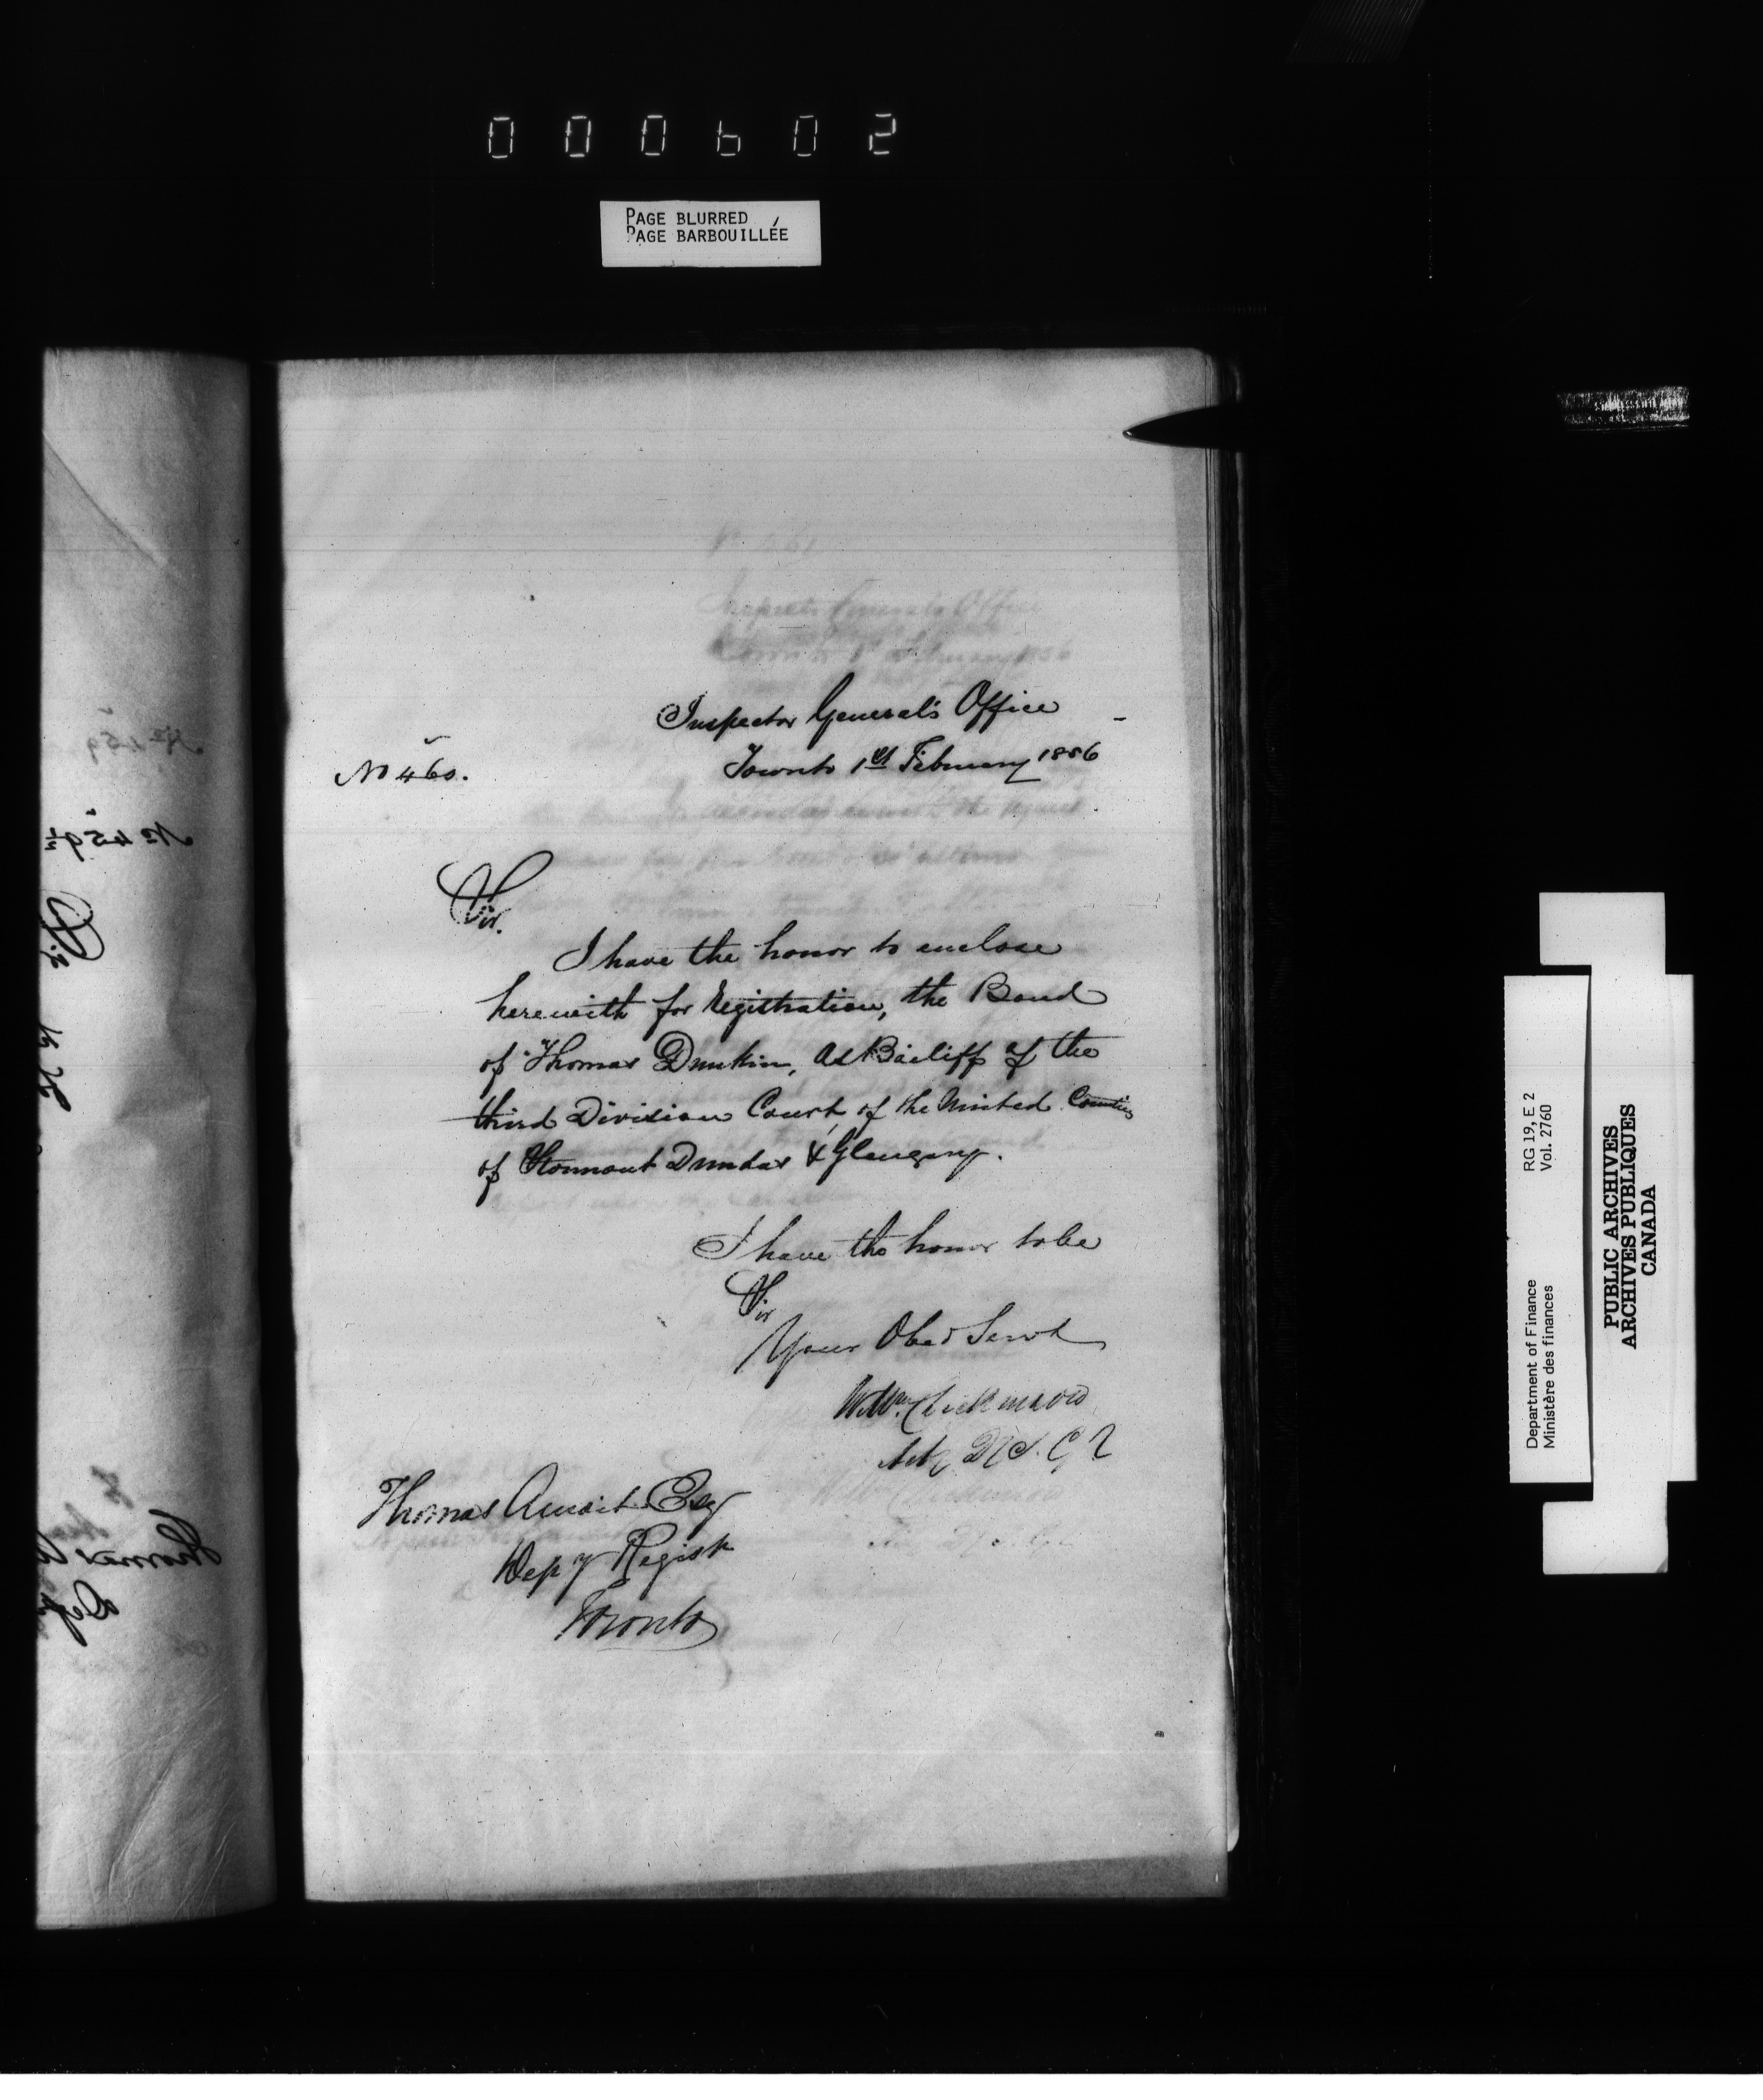 000602
PAGE BLURRED
PAGE BARBOUILLÉE
Inspector General's Office
Toronto 1st February 1856
No 460.
Sir.
I have the honor to enclose
herewith for Registration, the Bond
of Thomas Dunkin, as Bailiff of the
third Division Court of the United Counties
of Stormont Dundas & Glengary.
I have the honor to be
Sir
Your Obed Servt
Wm Dickinson
Thomas Amiot Esq
Depy Regist
Toronto
Department of Finance
Ministère des finances
RG 19, E 2
Vol. 2760
PUBLIC ARCHIVES
ARCHIVES PUBLIQUES
CANADA